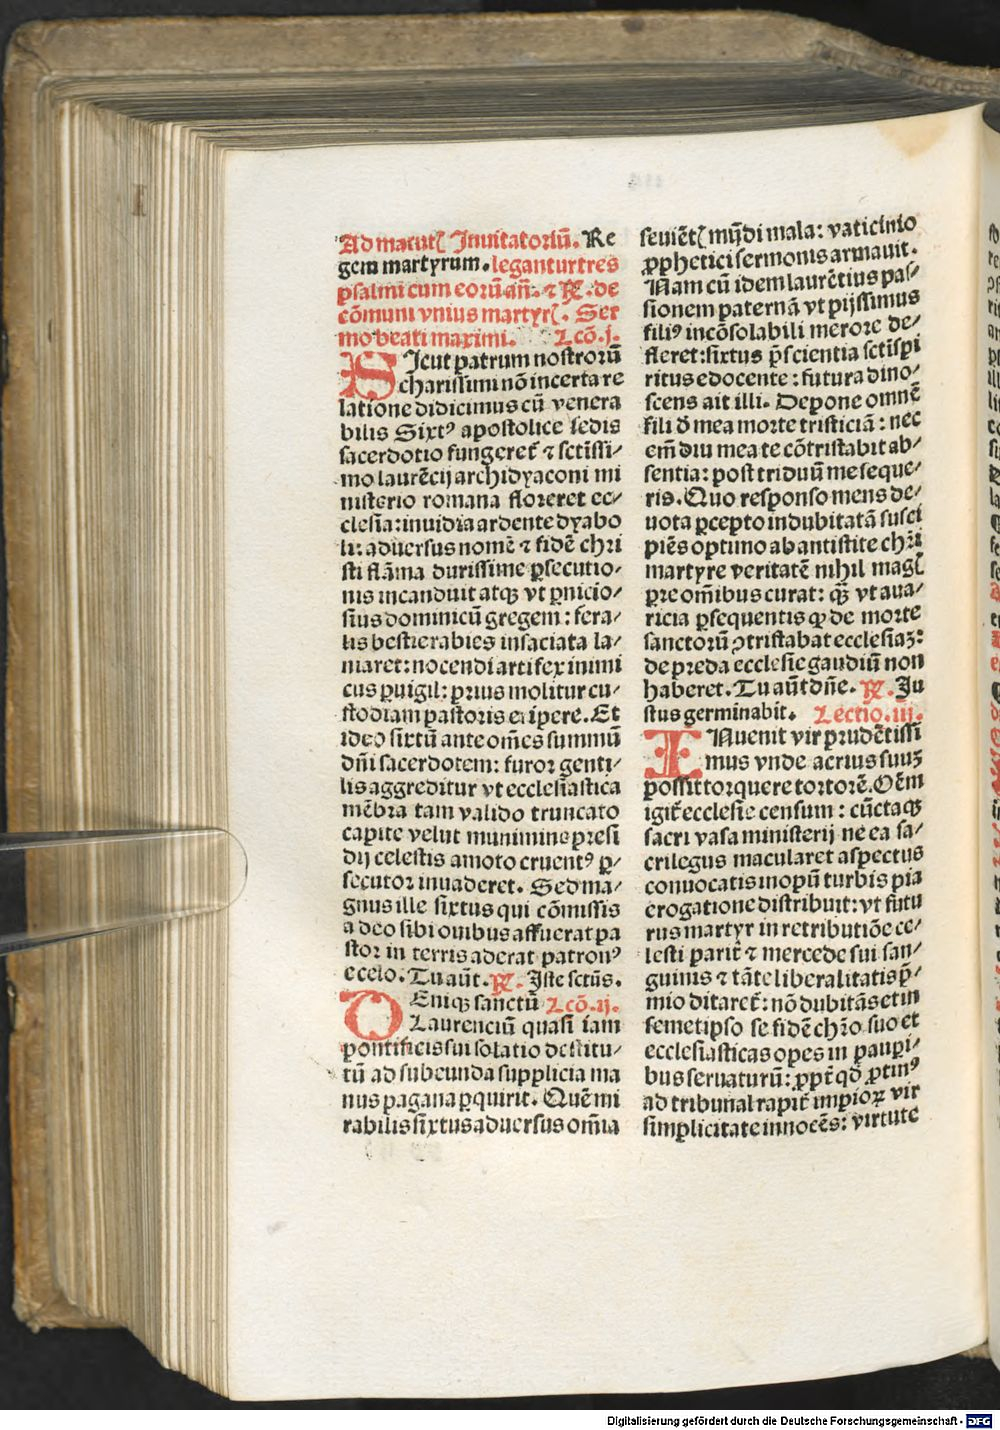 Ad matutꝭ Inuitatoriū. Re
gem martyrum. legantur tres
psalmi cum eorū añ. ⁊ ℟. de
cōmuni vnius martyrꝭ. Ser
mo beati maximi. Lcō.j.
SIcut patrum nostrorū
charissimi nō incerta re
latione didicimus cū venera
bilis Sixtꝰ apostolice sedis
sacerdotio fungeret᷑ ⁊ sctissi-
mo laurēcij archidyaconi mi
nisterio romana floreret ec-
clesia: inuidia ardente dyabo
li: aduersus nomē ⁊ fidē chri
sti flāma durissime ꝑsecutio-
nis incanduit atqꝫ vt ꝑnicio-
sius dominicū gregem: fera-
lis bestie rabies insaciata la-
niaret: nocendi artifex inimi
cus ꝑuigil: prius molitur cu-
stodiam pastoris eripere. Et
ideo sixtū ante om̄es summū
dn̄i sacerdotem: furor genti-
lis aggreditur vt ecclesiastica
mēbra tam valido truncato
capite velut munimine presi
dij celestis amoto cruentꝰ ꝑ-
secutor inuaderet. Sed ma-
gnus ille sixtus qui cōmissis
a deo sibi ouibus affuerat pa
stor in terris aderat patronꝰ
e celo. Tu aūt. ℟. Iste sctūs.
DEniqꝫ sanctū Lcō.ij.
Laurenciū quasi iam
pontificis sui solatio destitu-
tū ad subeunda supplicia ma
nus pagana ꝑquirit. Quē mi
rabilis sixtus aduersus om̄ia
seuiētꝭ mūdi mala: vaticinio
ꝓphetici sermonis armauit.
Nam cū idem laurētius pas-
sionem paternā vt pijssimus
filiꝰ incōsolabili merore de-
fleret: sixtus p̄scientia sctīspi
ritus edocente: futura dino-
scens ait illi. Depone omnē
fili d̄ mea morte tristiciā: nec
em̄ diu mea te cōtristabit ab-
sentia: post triduū me seque-
ris. Quo responso mens de-
uota ꝑcepto indubitatā susci
piēs optimo ab antistite chri
martyre veritatē nihil magꝭ
pre om̄ibus curat: qꝫ̄ vt aua-
ricia ꝑsequentis qꝫ de morte
sanctorū ꝯtristabat ecclesiaꝫ:
de preda ecclesie gaudiū non
haberet. Tu aūt dn̄e. ℟. Iu
stus germinabit. Lectio.iij.
INuenit vir prudētissi
mus vnde acrius suuꝫ
possit torquere tortorē. Om̄
igit᷑ ecclesie censum: cūctaqꝫ
sacri vasa ministerij ne ea sa-
crilegus macularet aspectus
conuocatis inopū turbis pia
erogatione distribuit: vt futu
rus martyr in retributiōe ce-
lesti parit᷑ ⁊ mercede sui san-
guinis ⁊ tāte liberalitatis p̄-
mio ditaret᷑: nō dubitās et in
semetipso se fidē chr̄o suo et
ecclesiasticas opes in pauꝑi-
bus seruaturū: ꝓpt᷑ qd̄ ꝓtinꝰ
ad tribunal rapit᷑ impioꝝ vir
simplicitate innocēs: virtute
Digitalisierung gefördert durch die Deutsche Forschungsgemeinschaft - DFG